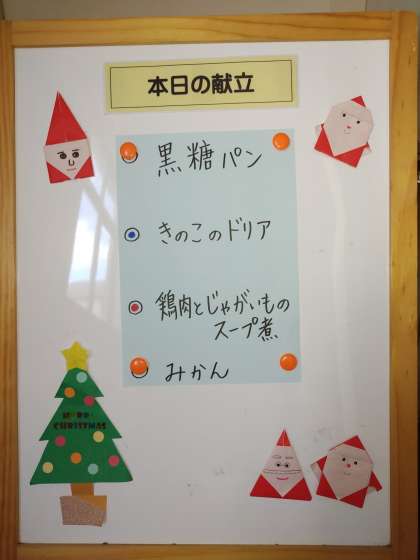 本日の献立
黒糖パン
きのこのドリア
鶏肉とじゃがいもの
スープ煮
みかん
MERRY
CHRISTMAS